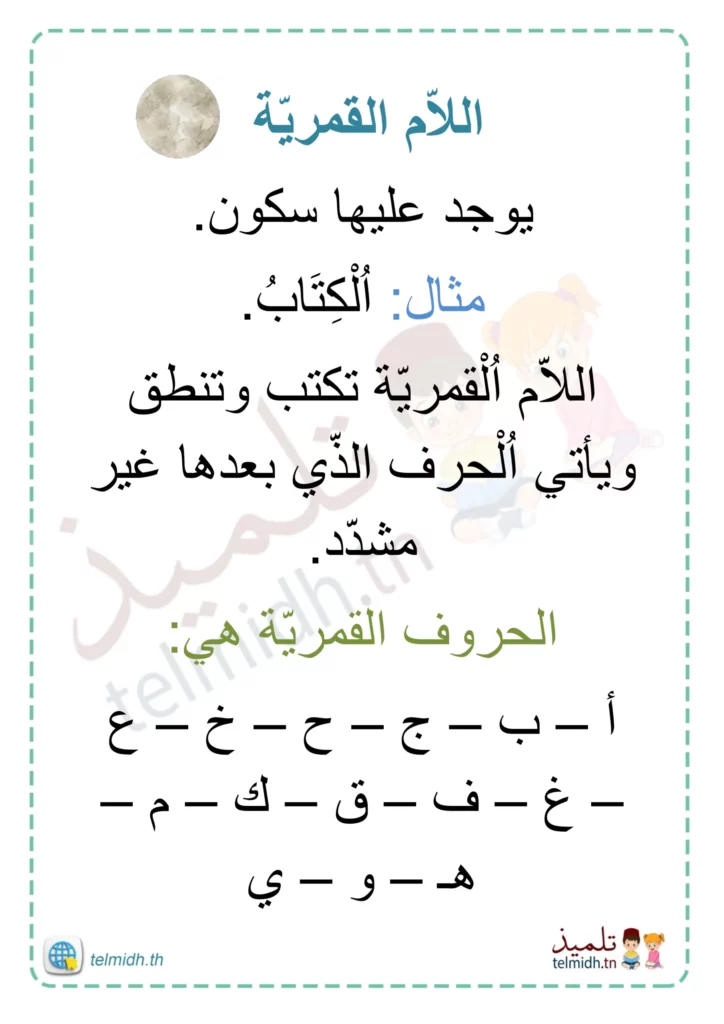 اللاّم القمريّة
يوجد عليها سكون.
مثال: اُلْكِتَابُ.
اللاّم اُلْقمريّة تكتب وتنطق
ويأتي اُلْحرف الذّي بعدها غير
مشدّد.
الحروف القمريّة هي:
أ – ب – ج – ح – خ – ع
– غ – ف – ق – ك – م –
هـ – و – ي
تلميذ
telmidh.tn
telmidh.th
تلميذ
telmidh.tn